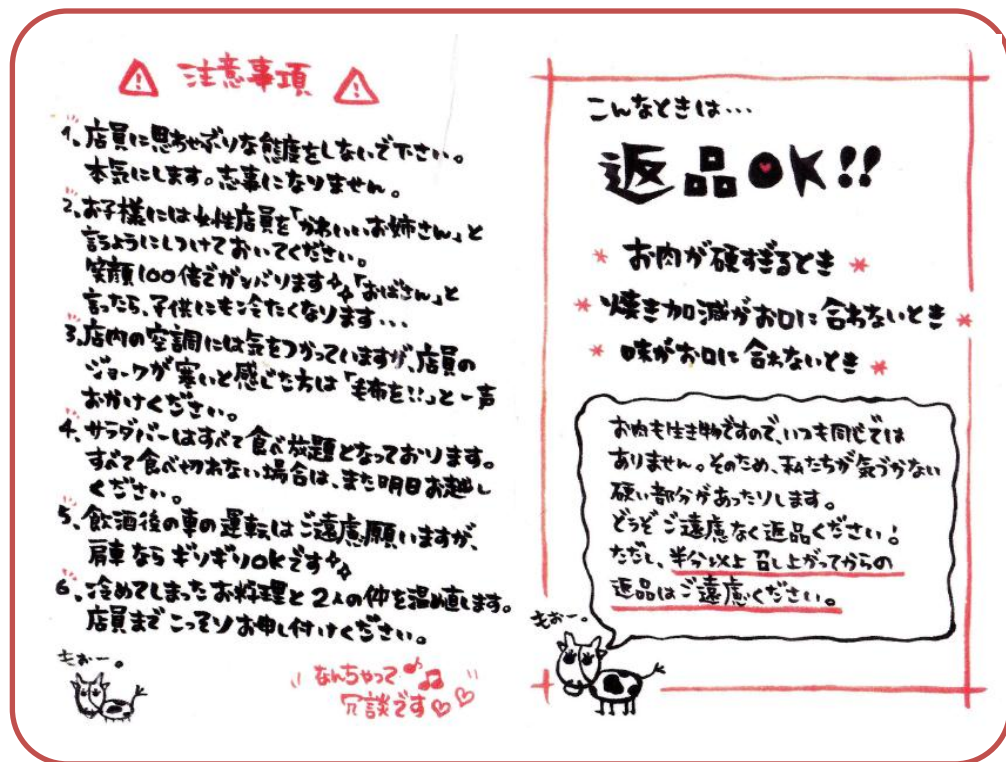 注意事項
1、店員に思わせぶりな態度をしないで下さい。
本気にします。志事になりません。
2、お子様には女性店員を「かわいいお姉さん」と
言うようにしつけておいてください。
笑顔100倍でガンバリます「おばさん」と
言ったら、子供にも冷たくなります…
3、店内の空調には気をつかっていますが、店員の
ジョークが寒いと感じた方は「毛布を!!」と一声
おかけください。
4、サラダバーはすべて食べ放題となっております。
すべて食べ切れない場合は、また明日お越し
ください。
5、飲酒後の車の運転はご遠慮願いますが、
肩車ならギリギリOKです
6、冷めてしまったお料理と2人の仲を温め直します。
店員までこってりお申し付けください。
もぉー。
なんちゃって♪♫
冗談です♡♡
こんなときは…
返品OK!!
* お肉が硬すぎるとき *
* 焼き加減がお口に合わないとき *
* 味がお口に合わないとき *
お肉も生き物ですので、いつも同じでは
ありません。そのため、私たちが気づかない
硬い部分があったりします。
どうぞご遠慮なく返品ください!
ただし、半分以上召し上がってからの
返品はご遠慮ください。
もぉー。